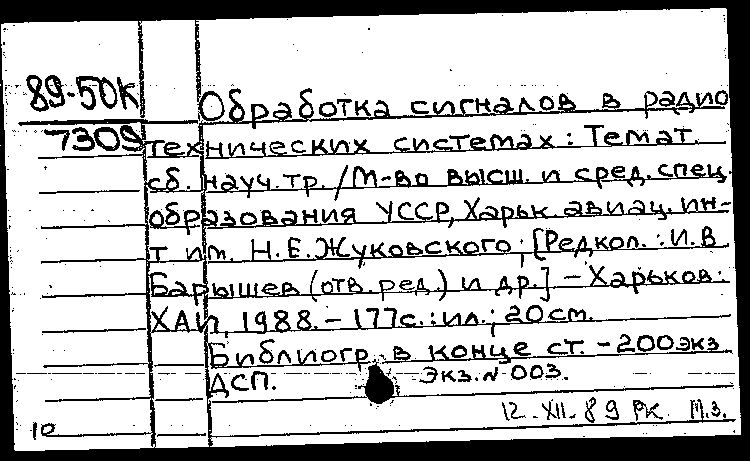 89-50К
7309
Обработка сигналов в радио
технических системах: Темат.
сб. науч. тр. / М-во высш. и сред. спец.
образования УССР, Харьк. авиац. ин-
т им. Н.Е. Жуковского; [Редкол.: И.В
Барышев (отв. ред.) и др.] – Харьков:
ХАИ, 1988. – 177с.: ил.; 20 см.
Библиогр. в конце ст. – 200 экз
ДСП. Экз. № 003.
12.XII.89 РК М.З.
10